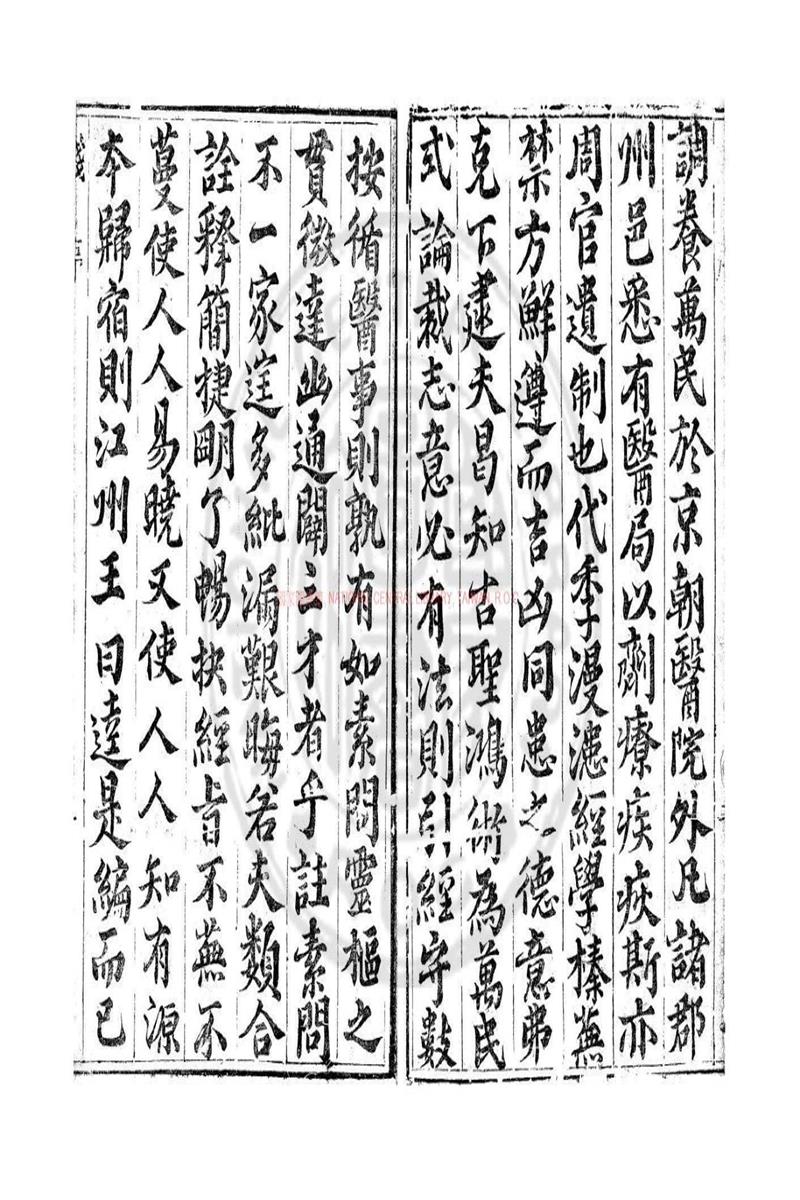 調養萬民於京朝醫院外凡諸郡
州邑悉有醫局以劑療疾疢斯亦
周官遺制也代季漫漶經學榛蕪
禁方鮮遵而吉凶同患之德意弗
克下逮夫昌知古聖鴻術為萬民
式論裁志意必有法則引經守數
按循醫事則孰有如素問靈樞之
貫微達幽通闢立才者乎註素問
不一家率多紕漏艱晦若夫類合
詮釋簡捷明了暢抉經旨不蕪不
蔓使人人易曉又使人人知有源
本歸宿則江州王曰逵是編而已
NATIONAL CENTRAL LIBRARY TAIWAN R.O.C